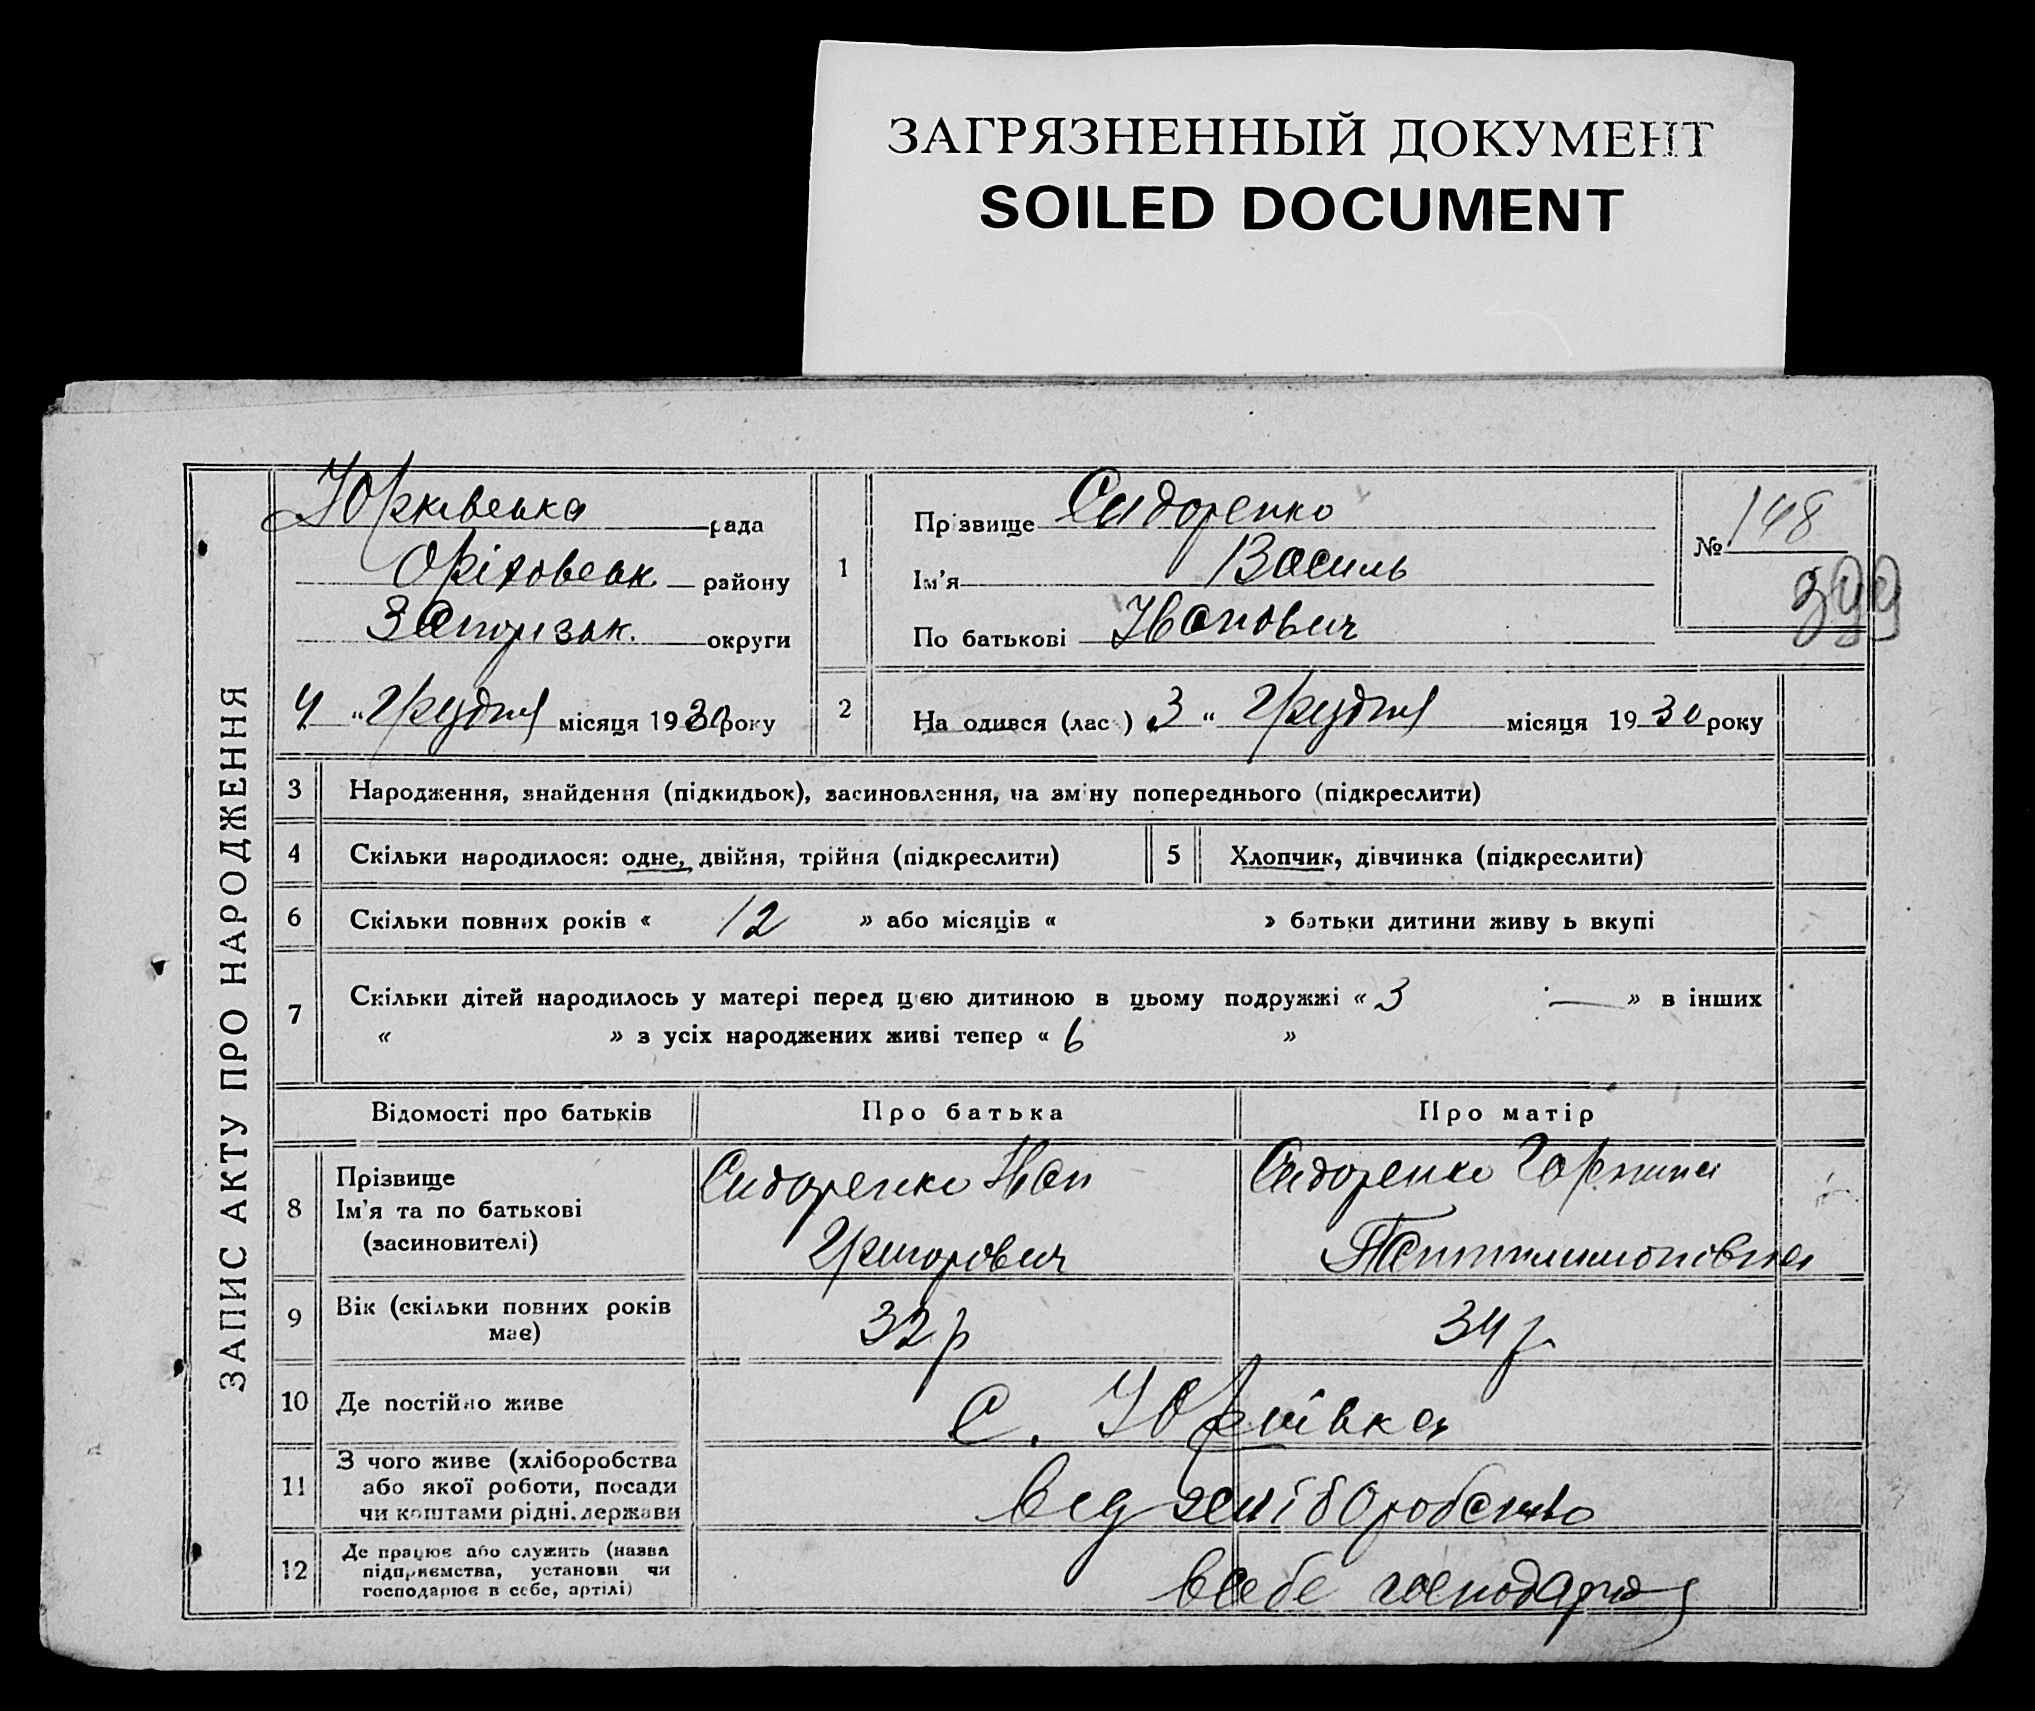 ЗАГРЯЗНЕННЫЙ ДОКУМЕНТ
SOILED DOCUMENT
ЗАПИС АКТУ ПРО НАРОДЖЕННЯ
Юрківська рада
Оріховськ району
Запорізьк. округи
4 " грудня місяця 1930 року
1
Прізвище Сидоренко
Ім'я Василь
По батькові Іванович
№ 148
399
2
На одився (лас ) 3 " грудня місяця 1930 року
3 Народження, знайдення (підкидьок), засиновлення, на зміну попереднього (підкреслити)
4 Скільки народилося: одне, двійня, трійня (підкреслити)
5 Хлопчик, дівчинка (підкреслити)
6 Скільки повних років « 12 » або місяців « » батьки дитини живу ь вкупі
7 Скільки дітей народилось у матері перед цією дитиною в цьому подружжі « 3 — » в інших
« » з усіх народжених живі тепер « 6 »
Відомості про батьків Про батька Про матір
8
Прізвище
Ім'я та по батькові
(засиновителі)
Сидоренко Іван
Григорович
Сидоренко Горпина
Пантилимонівна
9
Вік (скільки повних років
має)
32 р
34 р
10 Де постійно живе
с. Юрківка
11
З чого живе (хліборобства
або якої роботи, посади
чи коштами рідні, держави
від хліборобства
12
Де працює або служить (назва
підприємства, установи чи
господарює в себе, артілі)
в себе господарює